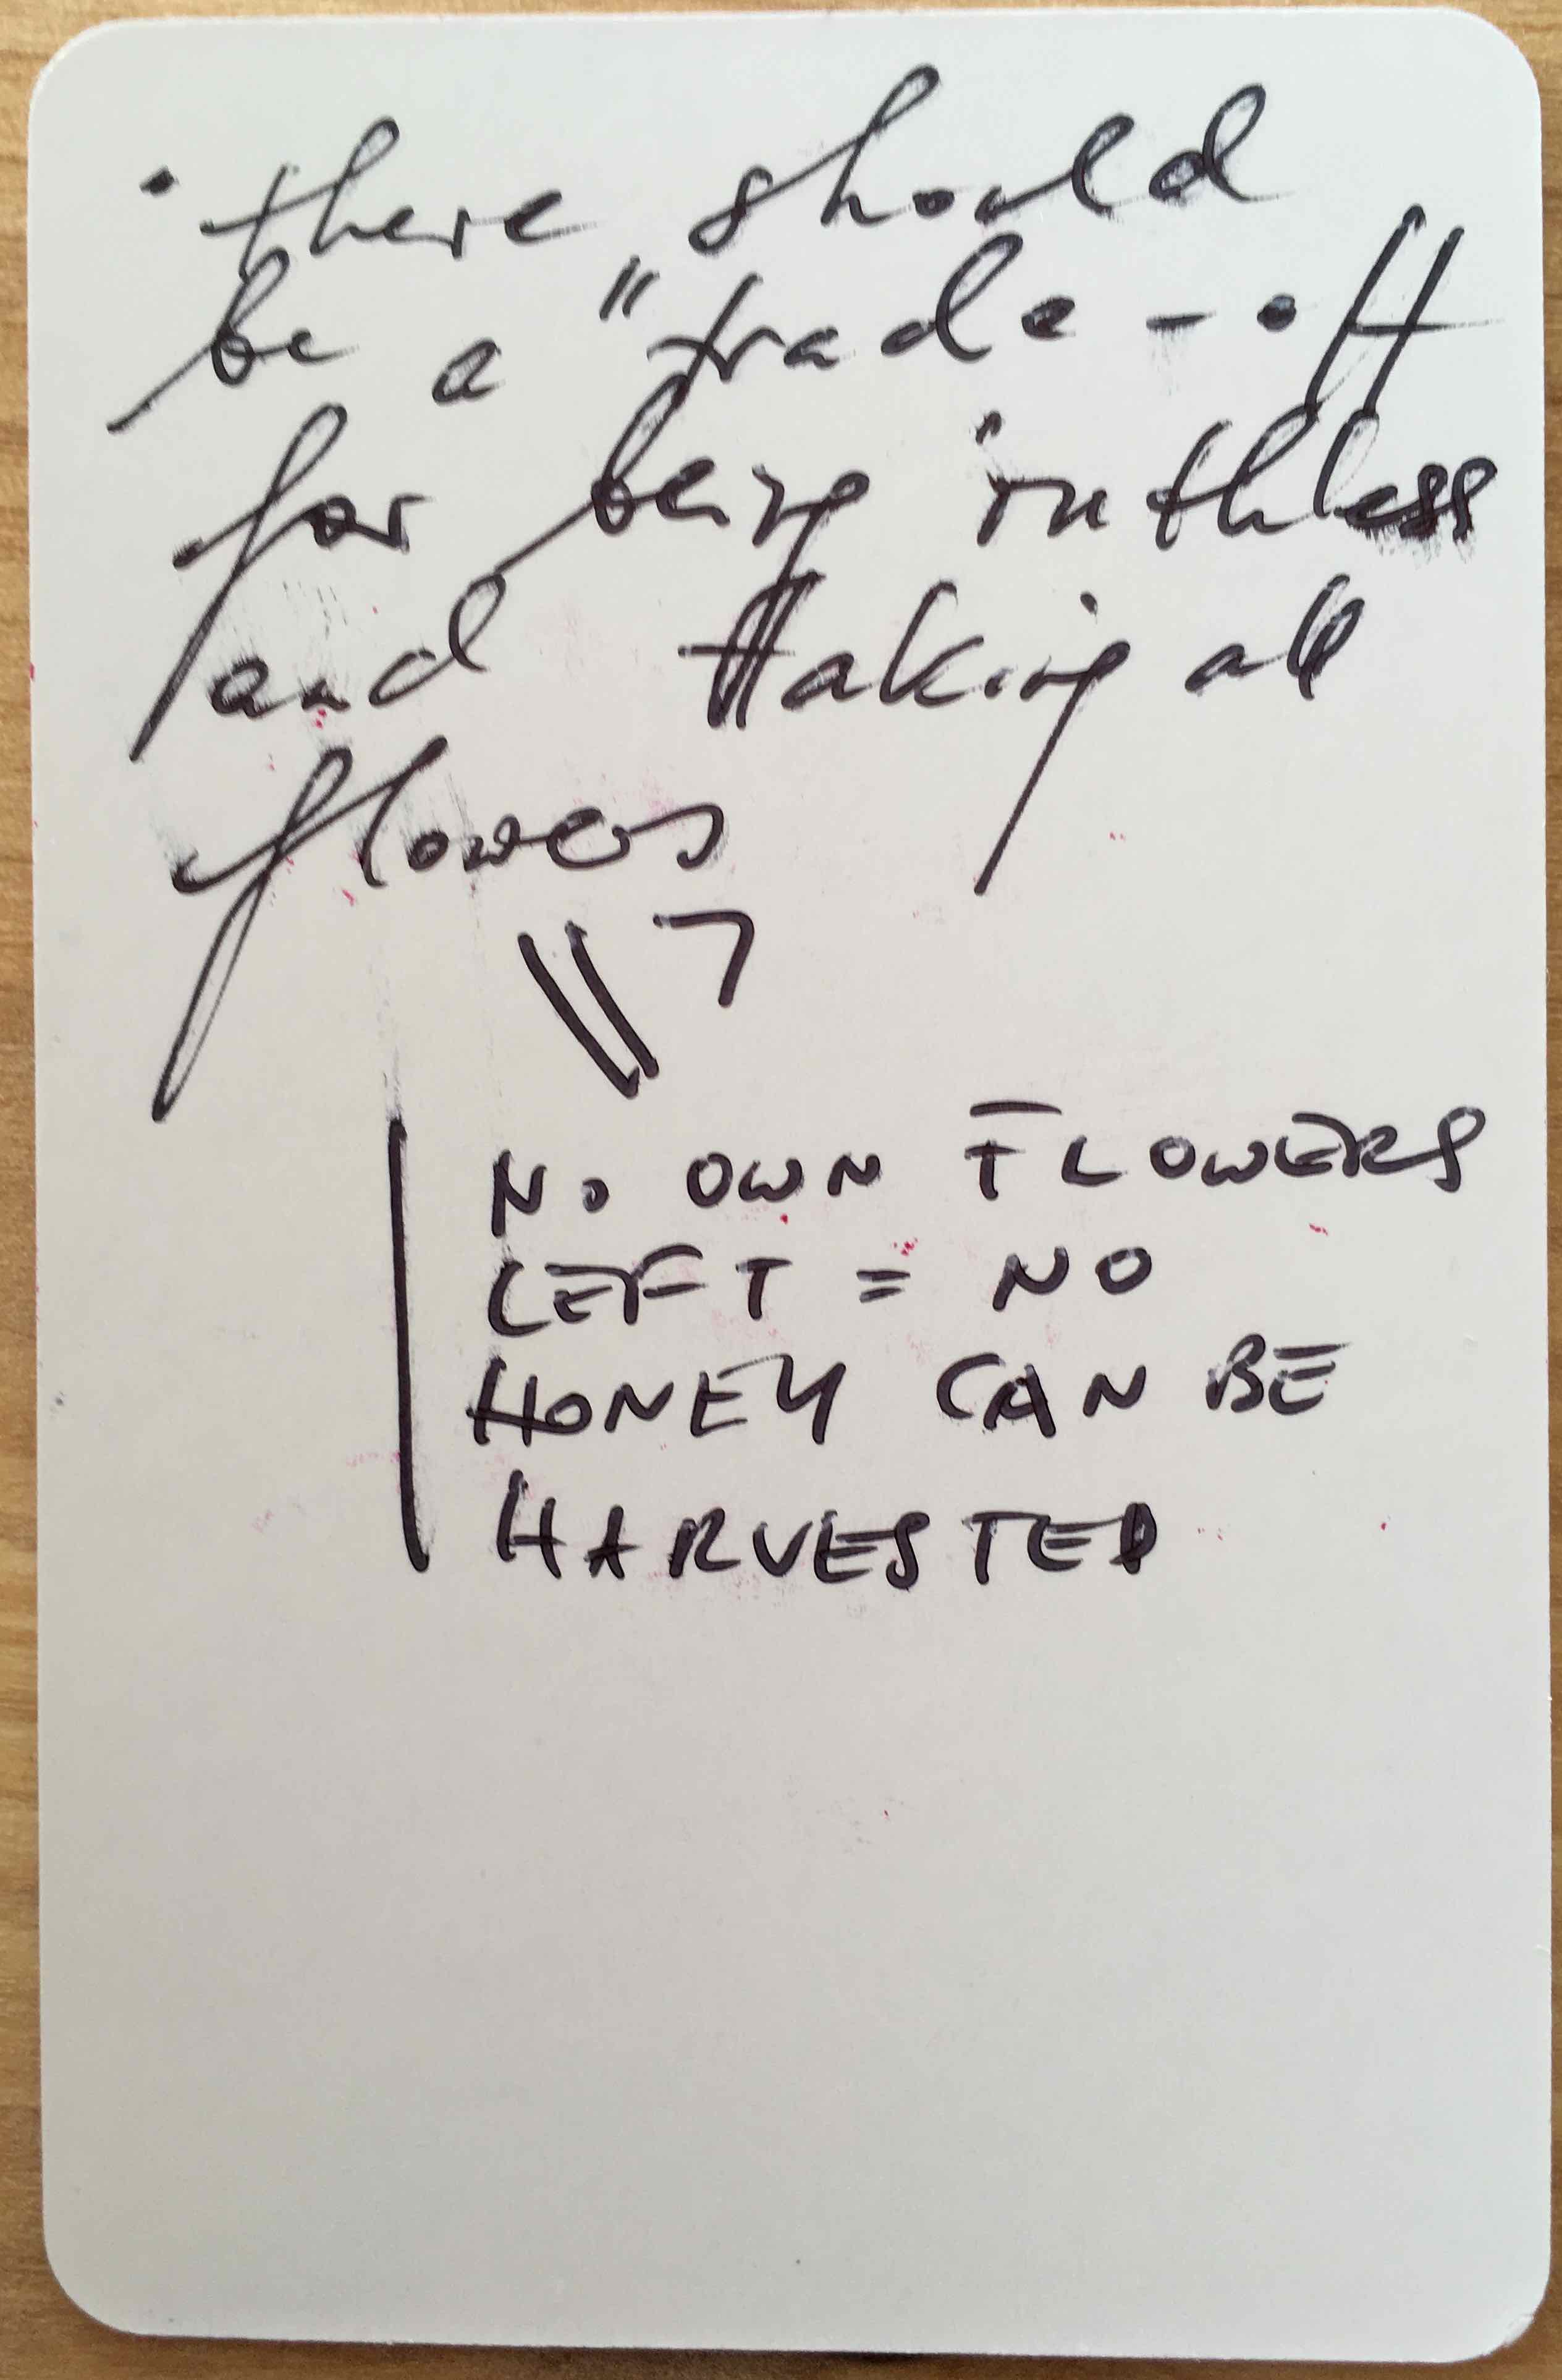 • there should
be a "trade-off
for being ruthless
and taking all
flowers
NO OWN FLOWERS
LEFT = NO
HONEY CAN BE
HARVESTED